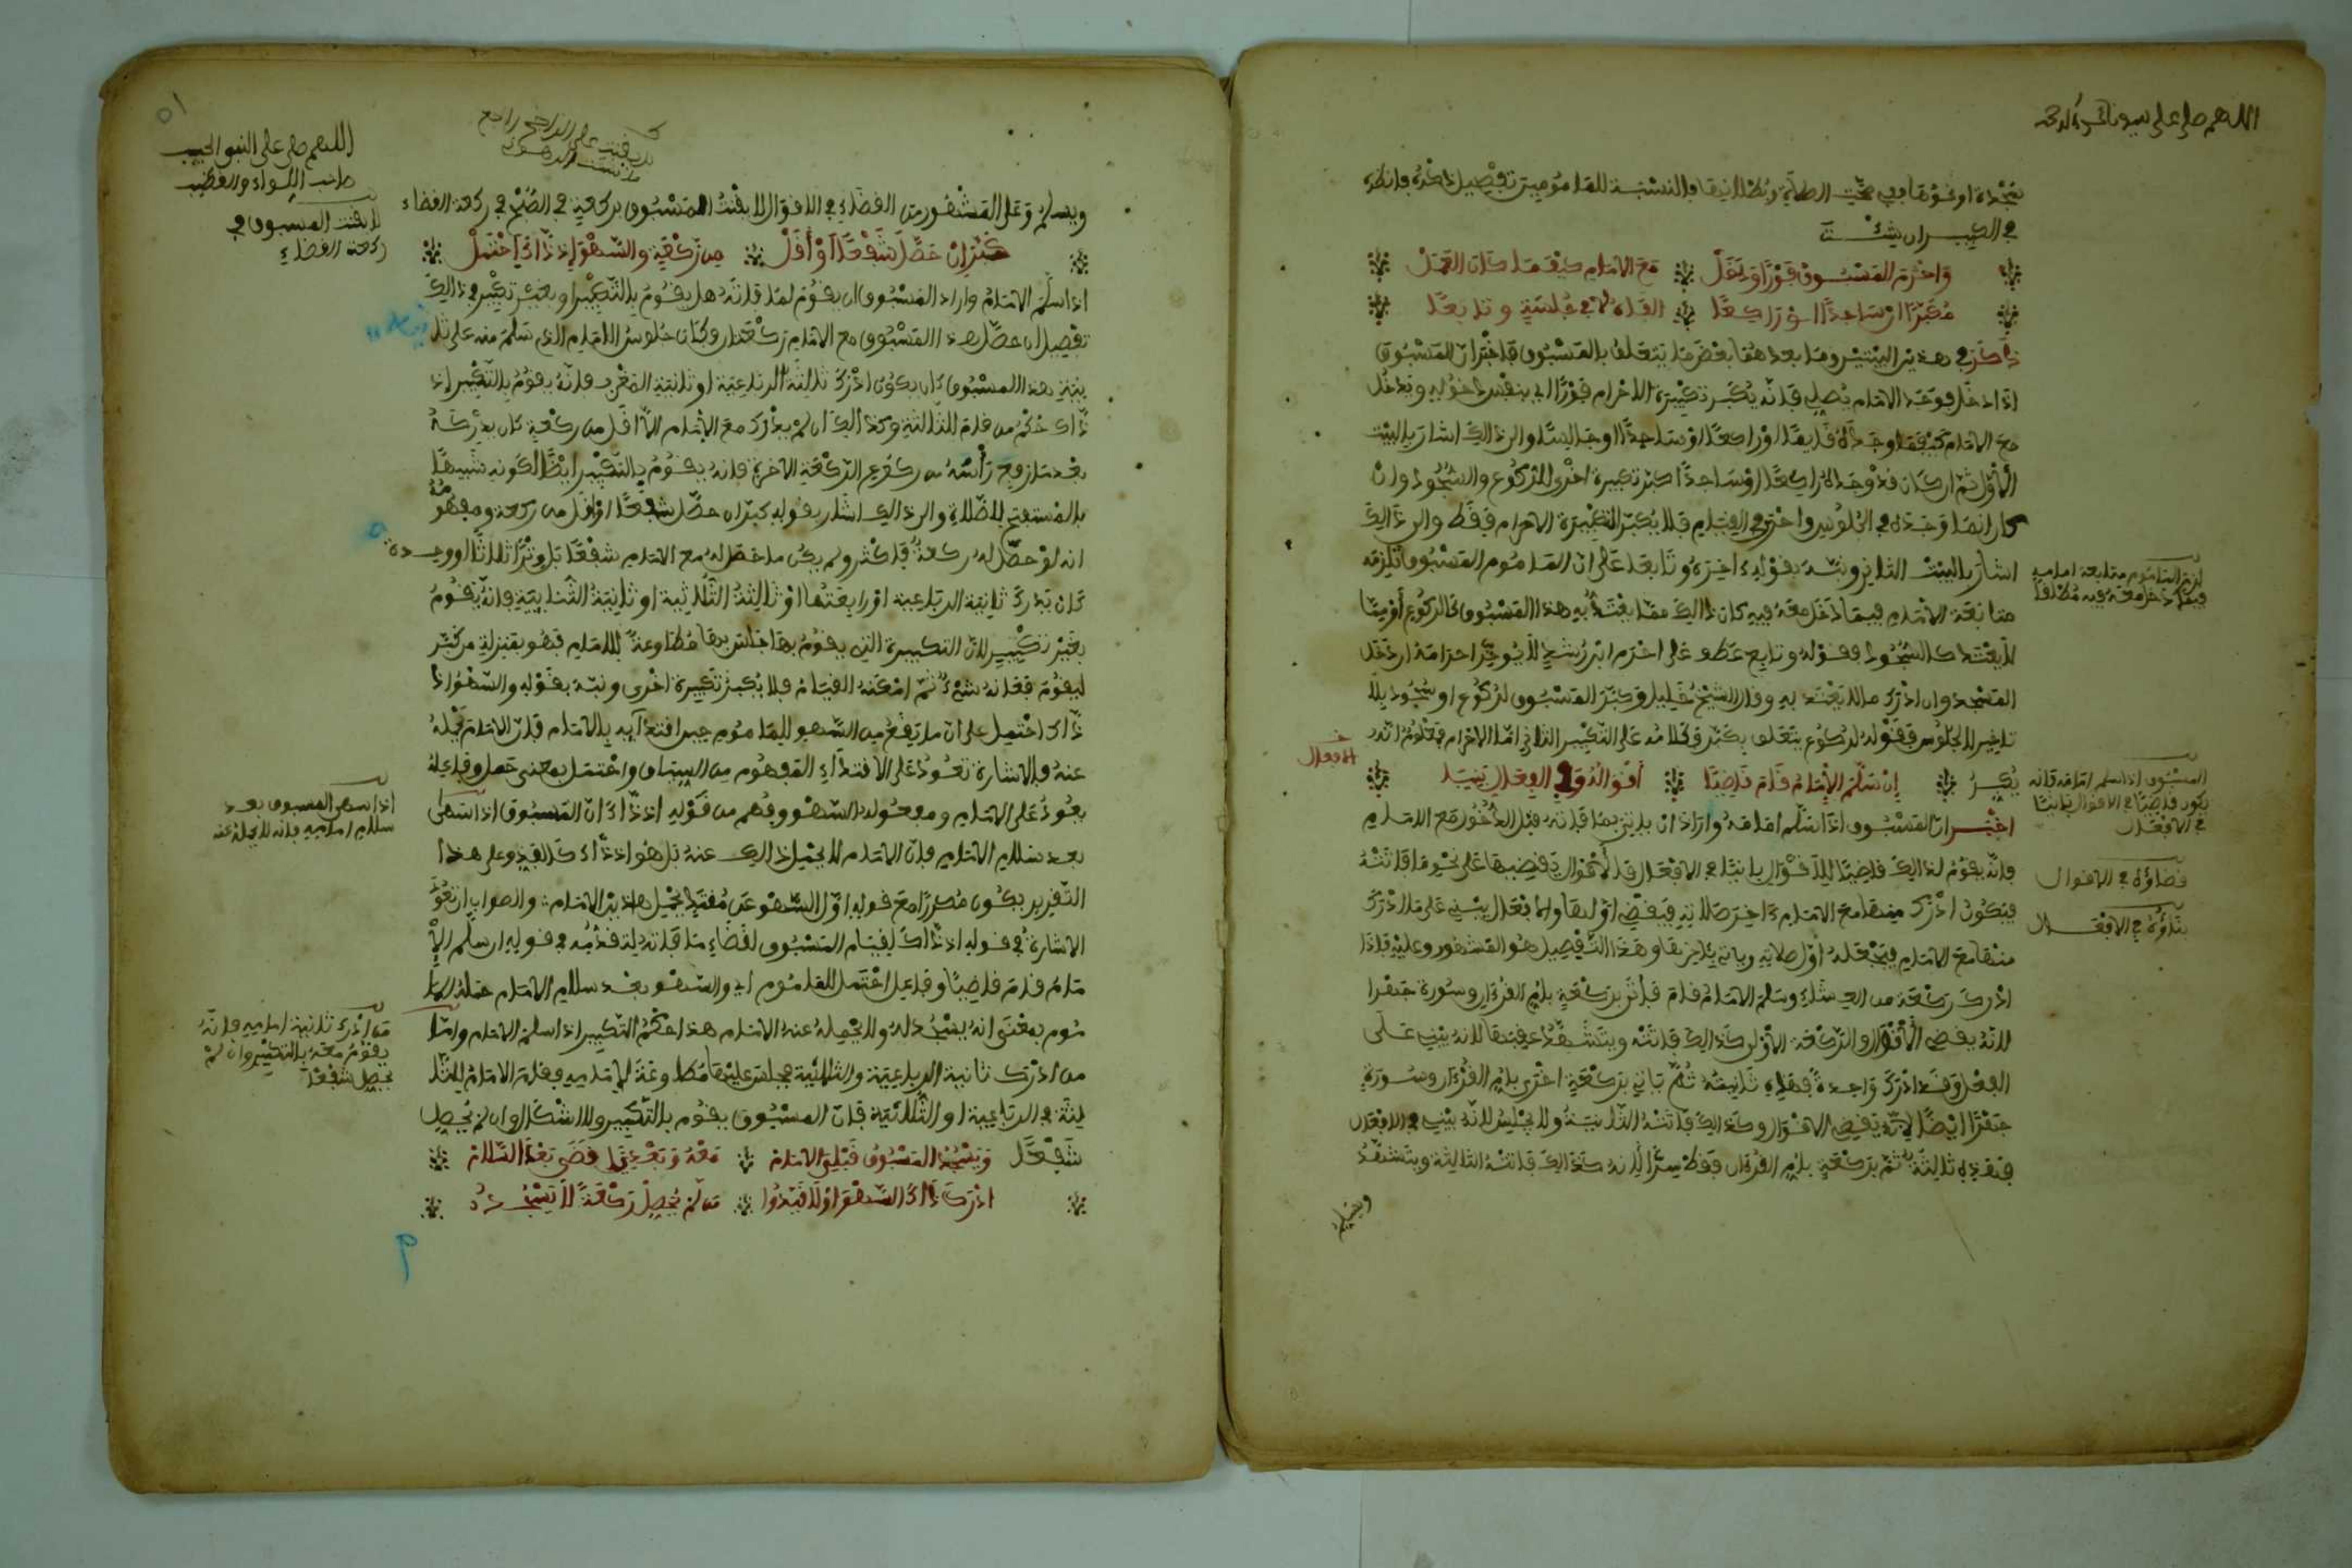 اللهم صل على سيدنا محمد وآله
في الكبير ان شئت
وأحرم المسبوق فورا ودخل مع الامام كيفما كان العمل
مكبرا ان ساجدا او راكعا الفاه لا في جلسة وتابعا
ذكر في هذين البيتين وما بعدهما بعض ما يتعلق بالمسبوق فاخبر ان المسبوق
اذا دخل فوجد الامام يصلي فانه يكبر تكبيرة الاحرام فورا اي بنفس دخوله ويدخل
مع الامام كيفما وجده قايما او راكعا او ساجدا او جالسا والى ذالك اشار بالبيت
الاول ثم ان كان قد وجده راكعا او ساجدا كبر تكبيرة اخرى للركوع والسجود وان
كان انما وجده في الجلوس واحرى في القيام فلا يكبر الا تكبيرة الاحرام فقط والى ذالك
اشار بالبيت الثاني ونبه بقوله وتابعا على ان الماموم المسبوق تلزمه
متابعة الامام فيما دخل معه فيه كان ذالك مما يعتد به هذا المسبوق كالركوع او مما
لا يعتد كالسجود
المسجد وان ادرك ما لا يعتد به وقال الشيخ خليل وكبر المسبوق لركوع او سجود بلا
تاخير لا لجلوس فقوله لركوع يتعلق بكبر
الافعال
ان سلم الامام قام قاضيا اقواله وفي الفعال بانيا
اخبر ان المسبوق اذا سلم امامه واراد ان ياتي بما فاته قبل الدخول مع الامام
فانه يقوم لذالك قاضيا للاقوال بانيا في الافعال فالاقوال يقضيها على نحو ما فاتته
فيكون ما ادرك منها مع الامام ءاخر صلاته فيقضي اولها والافعال يبني على ما ادرك
منها مع الامام فيجعله اول صلاته وياتي بآخرها وهذا التفصيل هو المشهور وعليه فاذا
ادرك ركعة من العشاء وسلم الامام قام فياتي بركعة بام القرءان وسورة جهرا
لانه يقضي الاقوال والركعة الاولى كذالك فاتته ويتشهد عقبها لانه يبني على
الفعل وقد ادرك واحدة فهذه ثانيته ثم ياتي بركعة اخرى بام القرءان وسورة
جهرا ايضا لانه يقضي الاقوال وكذالك فاتته الثانية ولا يجلس لانه يبني في الافعال
فهذه ثالثة ثم بركعة بام القرءان فقط سرا لانه كذالك فاتته الثالثة ويتشهد
ويسلم
قضاؤه في الاقوال
بناؤه في الافعال
اللهم صل على النبي الحبيب
صاحب اللواء والقضيب
لا يقنت المسبوق في
ركعة القضاء
ويسلم وعلى المشهور من القضاء في الاقوال لا يقنت المسبوق بركعة في الصبح في ركعة القضاء
كبر ان حصل شفعا او اقل من ركعة والسهو اذ ذاك احتمل
اذا سلم الامام واراد المسبوق ان يقوم لما فاته هل يقوم بالتكبير او بغير تكبير في ذالك
تفصيل ان حصل هذا المسبوق مع الامام ركعتان وكان جلوس الامام الذي سلم منه على ثا
نية هذا المسبوق كان يكون ادرك ثالثة الرباعية او ثانية المغرب فانه يقوم بالتكبير اذ
ذاك حكم من قام للثالثة وكذالك ان لم يدرك مع الامام الا اقل من ركعة كان يدركه
بعد ما رفع رأسه من ركوع الركعة الاخيرة فانه يقوم بالتكبير ايضا لكونه شبيها
بالمستفتح للصلاة والى ذالك اشار بقوله كبر ان حصل شفعا او اقل من ركعة ومفهومه
انه لو حصل له ركعة فاكثر ولم يكن ما حصل له مع الامام شفعا بل وترا ثلاثا او واحدة
كان يدرك ثانية الرباعية او رابعتها او ثالثة الثلاثية او ثانية الثنايية فانه يقوم
بغير تكبير لان التكبيرة التي يقوم بها جلس بها مطاوعة للامام فهو بمنزلة من كبر
ليقوم فعاقه شيء ثم امكنه القيام فلا يكبر تكبيرة اخرى ونبه بقوله والسهو اذ
ذاك احتمل على ان ما يقع من السهو للماموم حين اقتدايه بالامام فان الامام يحمله
عنه فالاشارة تعود على الاقتداء المفهوم من السياق واحتمل بمعنى حمل وفاعله
يعود على الامام ومفعوله السهو وفهم من قوله اذ ذاك ان المسبوق اذا سهى
بعد سلام الامام فان الامام لا يحمل ذالك عنه بل هو اذ ذاك كالفذ وعلى هذا
التقرير يكون مكررا مع قوله اول السهو عن مقتد يحمل هاذين الامام والصواب ان تعود
الاشارة في قوله اذ ذاك لقيام المسبوق لقضاء ما فاته لتقدمه في قوله ان سلم الا
مام قام قاضيا وفاعل احتمل للماموم اي والسهو بعد سلام الامام حمله الما
موم بمعنى انه يسجد له ولا يحمله عنه الامام هذا حكم التكبير اذا سلم الامام واما
من ادرك ثانية الرباعية والثلاثية فجلس عليها مطاوعة لامامه وقام الامام للثا
لثة في الرباعية او الثلاثية فان المسبوق يقوم بالتكبير ولا اشكال وان لم يحصل
شفعا ويسجد المسبوق قبلي الامام معه وبعديا قضى بعد السلام
ادرك ذاك السهو او لا قيدوا من لم يحصل ركعة لا يسجد
اذا سهى المسبوق بعد
سلام امامه فانه لا يحمله عنه
من ادرك ثانية امامه فانه
يقوم معه بالتكبير وان لم
يحصل شفعا